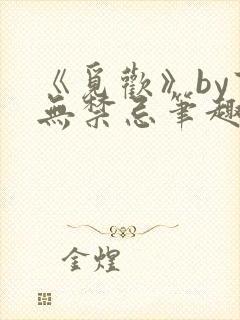 《覓歡》by
無禁忌筆趣
金煌